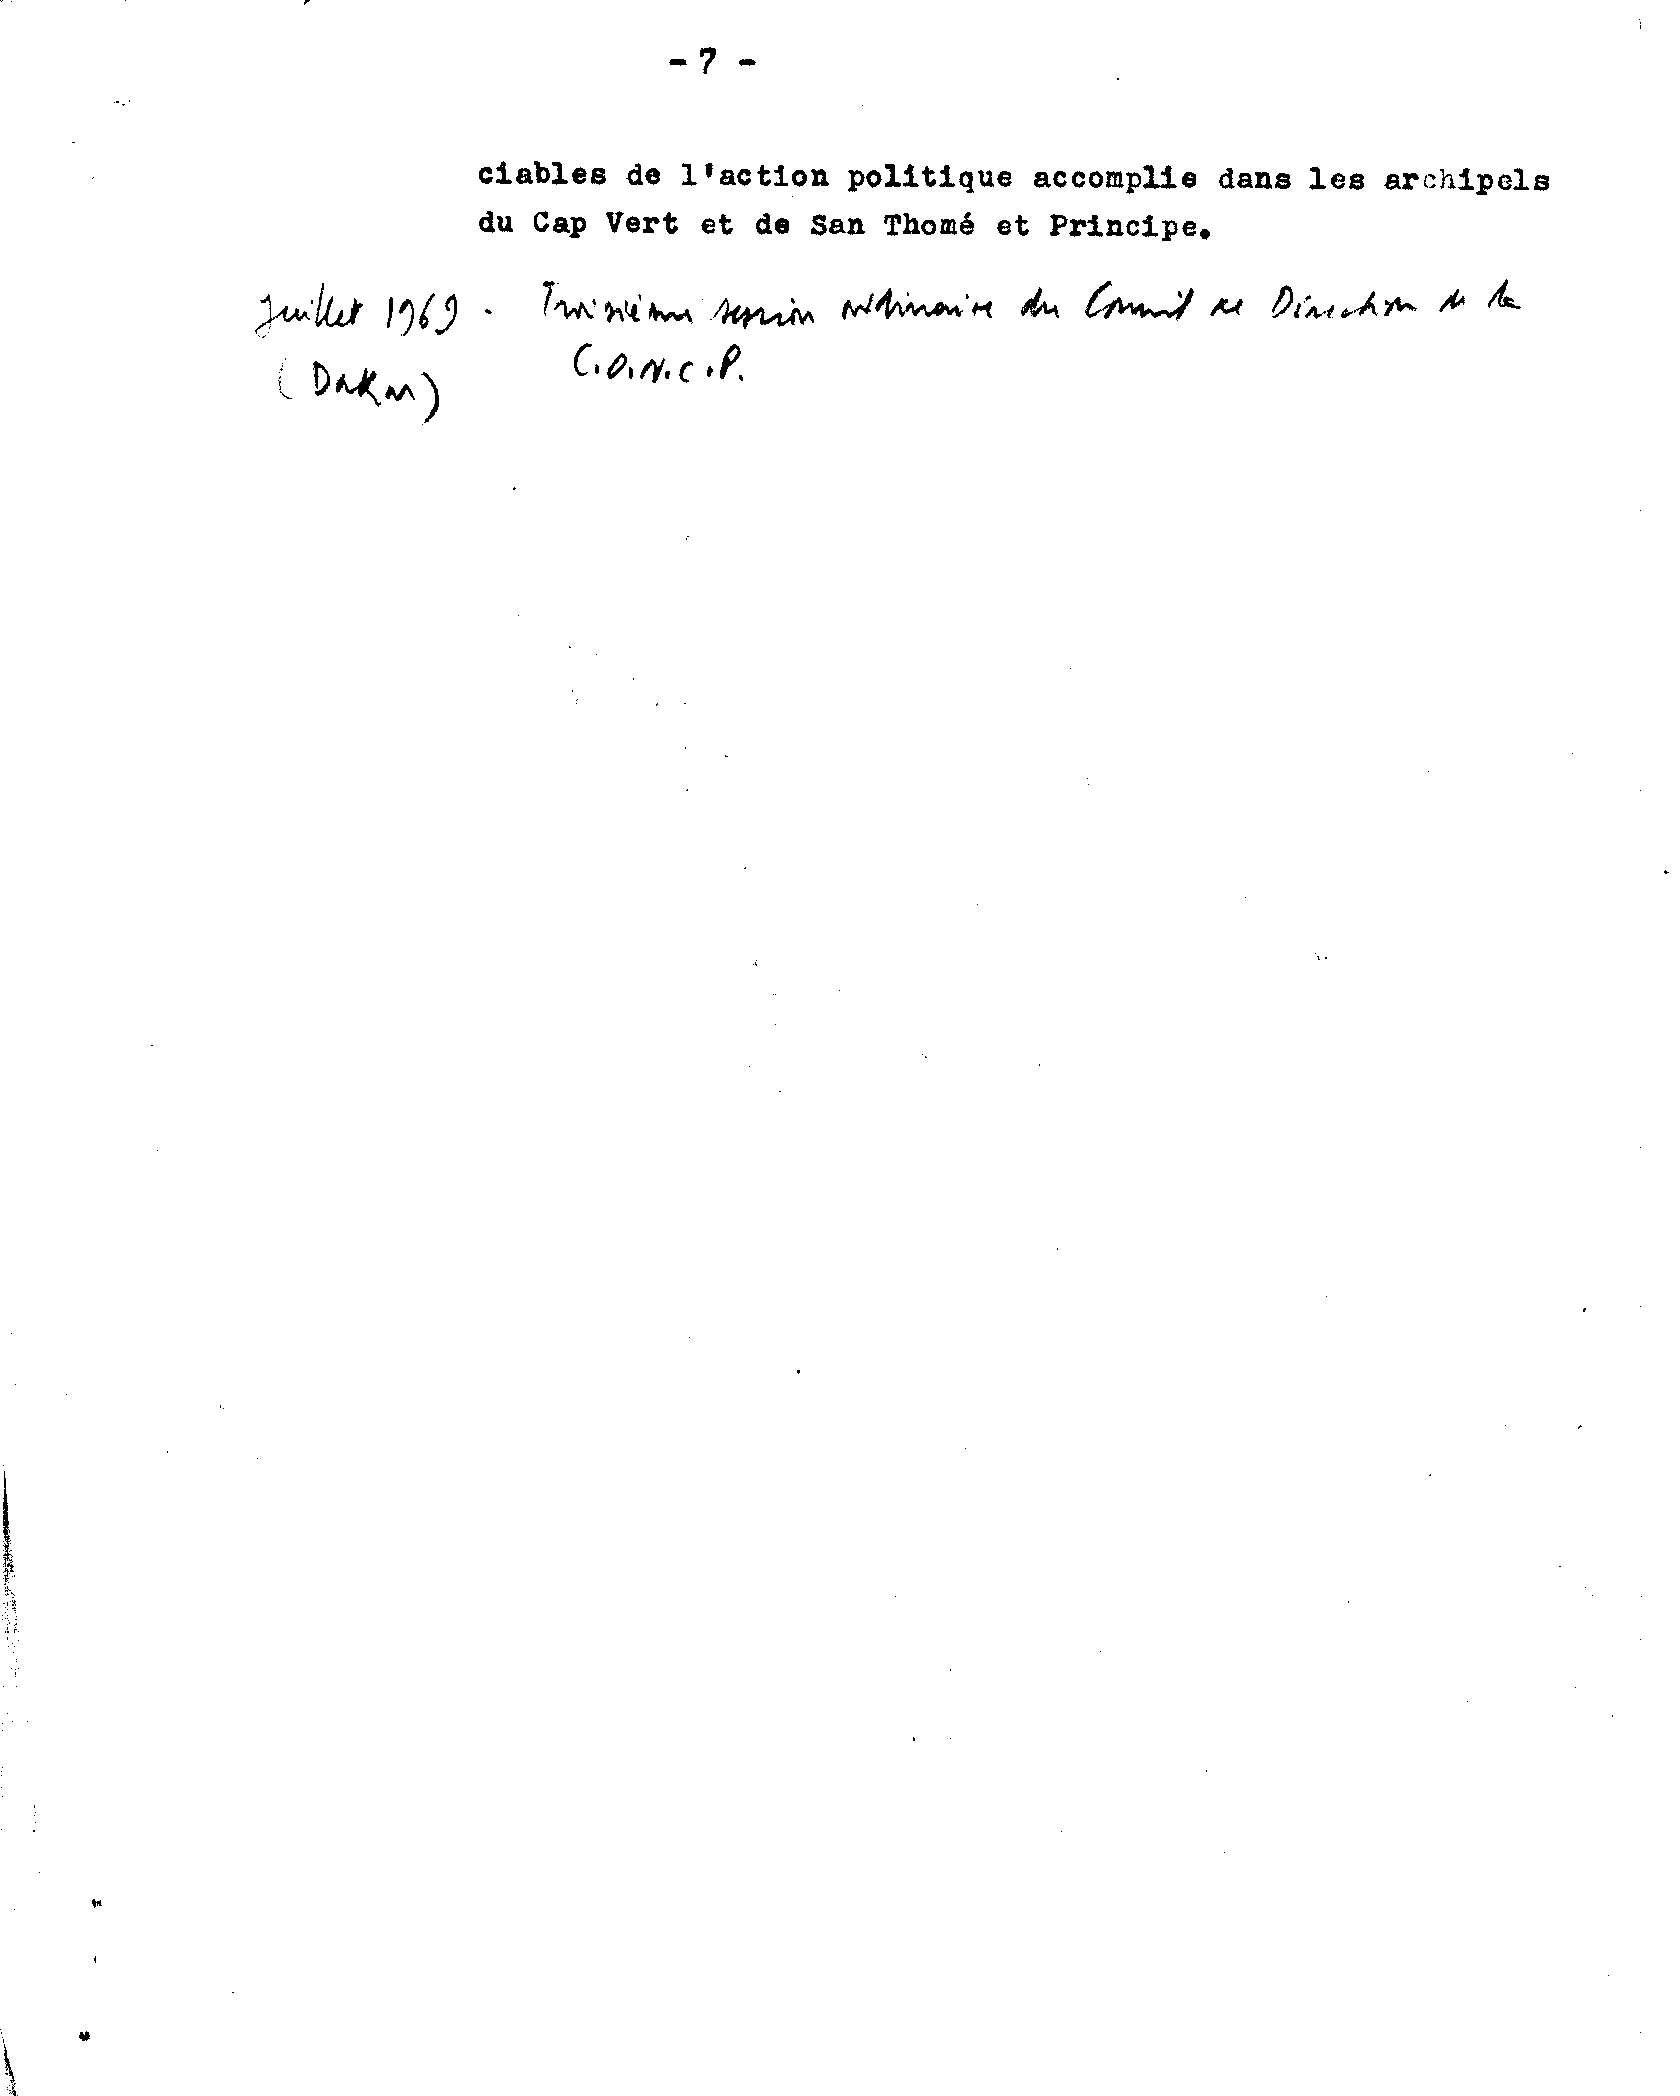 - 7 -
ciables de l'action politique accomplie dans les archipels
du Cap Vert et de San Thomé et Principe.
Juillet 1969 - Troisième session ordinaire du Conseil de Direction de la
(Dakar) C.O.N.C.P.